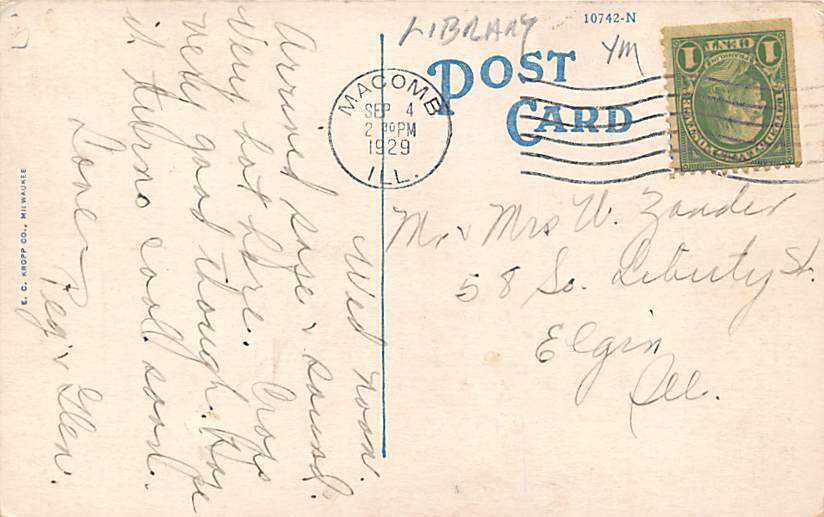 LIBRARY
10742-N
YM
POST CARD
MACOMB
SEP 4
2 30 PM
1929
ILL.
1 CENT 1
Wed noon.
Arrived safe & sound.
Very hot here. Crops
very good though. Hope
it turns cool soon.
Love Peg & Glen.
Mr & Mrs W. Zander
58 So. Liberty St.
Elgin
Ill.
E. C. KROPP CO., MILWAUKEE